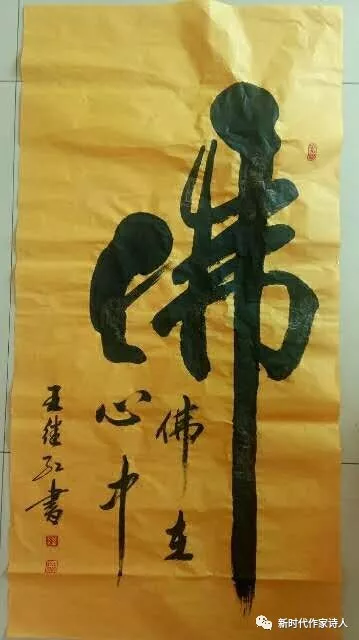 佛
佛在
心中
王继红书
新时代作家诗人